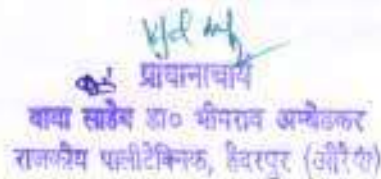 प्रधानाचार्य
बाबा साहेब डा० भीमराव अम्बेडकर
राजकीय पालीटेक्निक, हैदरपुर (औरैया)